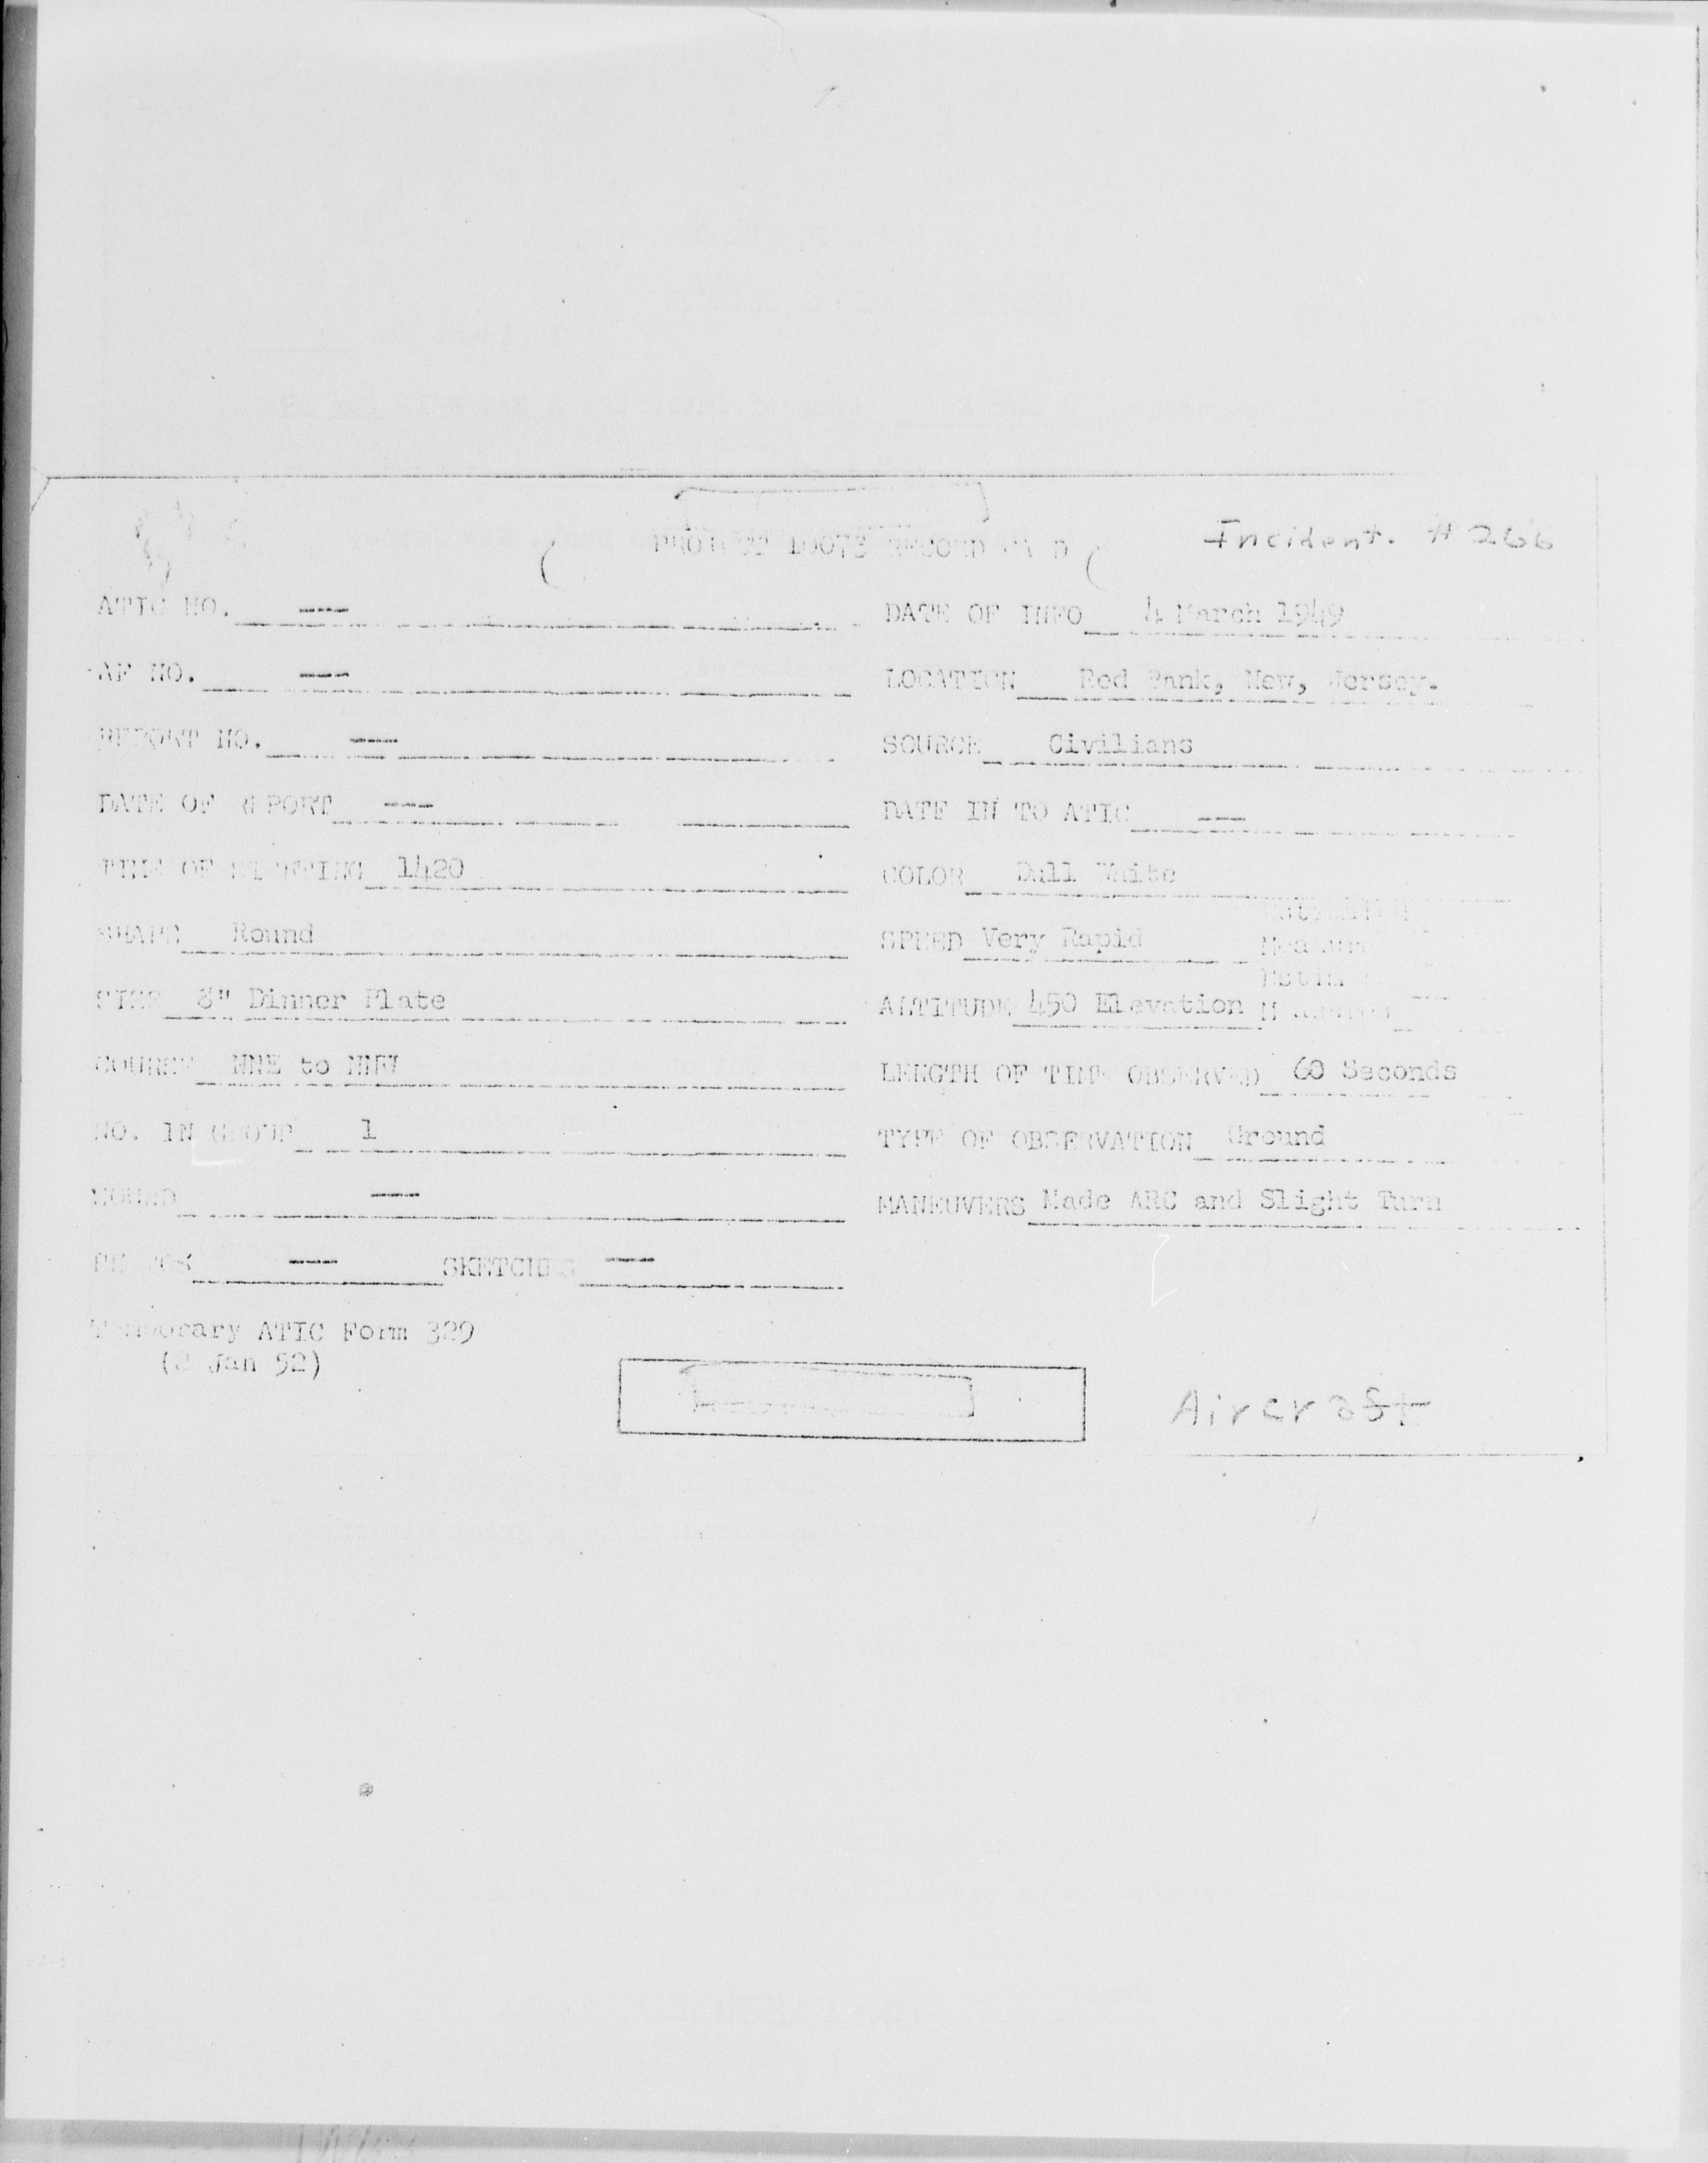 PROJECT 10073 RECORD CARD
Incident. # 266
ATIC NO. ---
DATE OF INFO 4 March 1949
AF NO. ---
LOCATION Red Bank, New, Jersey.
REPORT NO. ---
SOURCE Civilians
DATE OF REPORT ---
DATE IN TO ATIC ---
TIME OF SIGHTING 1420
COLOR Dull White
SHAPE Round
SPEED Very Rapid
SIZE 8" Dinner Plate
ALTITUDE 450 Elevation
COURSE NNE to NNW
LENGTH OF TIME OBSERVED 60 Seconds
NO. IN GROUP 1
TYPE OF OBSERVATION Ground
SOUND ---
MANEUVERS Made ARC and Slight Turn
PHOTOS --- SKETCHES ---
Temporary ATIC Form 329
(2 Jan 52)
Aircraft